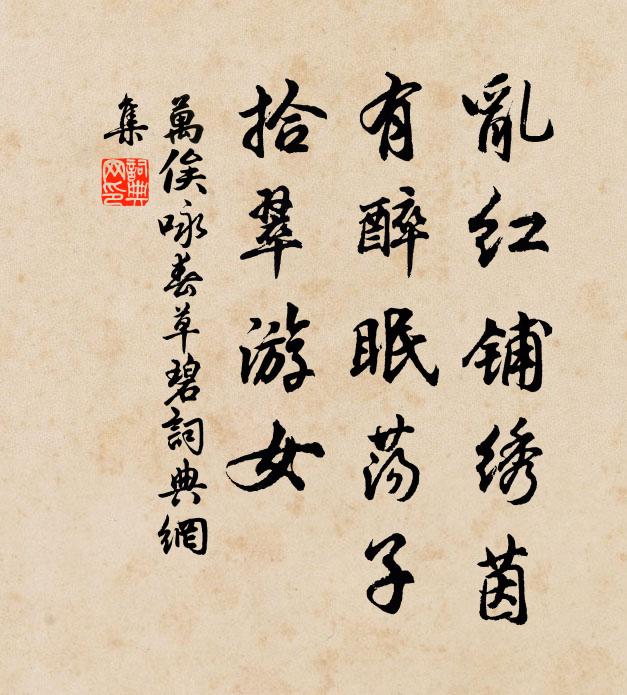 亂红铺绣茵
有醉眠荡子
拾翠游女
萬俟咏春草碧詞典網
集
詞典网印